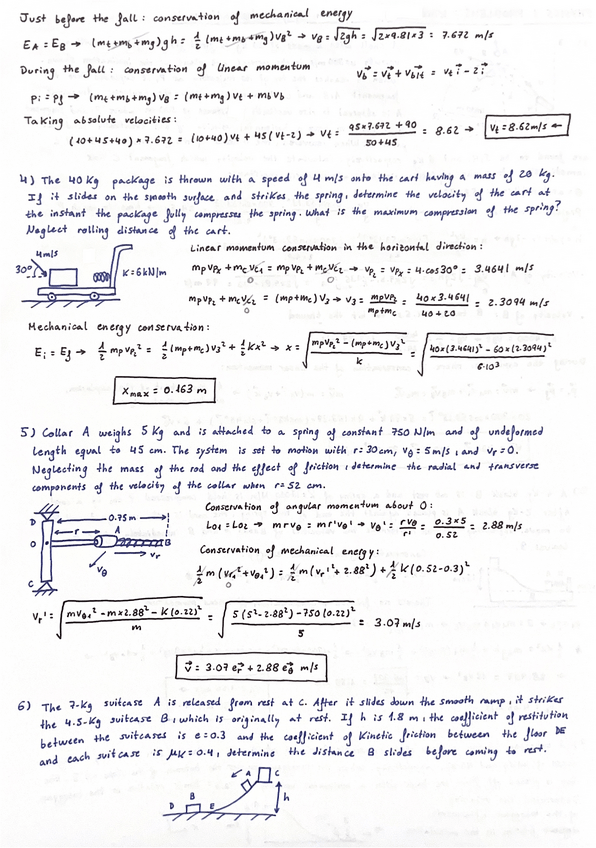 Just before the fall: conservation of mechanical energy
E_A = E_B → (m_t+m_b+m_g)gh = 1/2 (m_t+m_b+m_g)v_B² → v_B = √2gh = √2×9.81×3 = 7.672 m/s
During the fall: conservation of linear momentum v_b = v_t + v_b/t = v_t i - 2i
p_i = p_f → (m_t+m_b+m_g)v_B = (m_t+m_g)v_t + m_b v_b
Taking absolute velocities:
(10+45+40)×7.672 = (10+40)v_t + 45(v_t-2) → v_t = (95×7.672+90)/(50+45) = 8.62 → v_t = 8.62 m/s ←
4) The 40 Kg package is thrown with a speed of 4 m/s onto the cart having a mass of 20 Kg.
If it slides on the smooth surface and strikes the spring, determine the velocity of the cart at
the instant the package fully compresses the spring. What is the maximum compression of the spring?
Neglect rolling distance of the cart.
Linear momentum conservation in the horizontal direction:
4m/s
30°
K=6kN/m
m_p v_Px + m_c v_C1 = m_p v_P2 + m_c v_C2 → v_P2 = v_Px = 4·cos30° = 3.4641 m/s
0 0
m_p v_P2 + m_c v_C2 = (m_p+m_c) v_3 → v_3 = m_p v_P2/(m_p+m_c) = 40×3.4641/(40+20) = 2.3094 m/s
0
Mechanical energy conservation:
E_i = E_f → 1/2 m_p v_P2² = 1/2 (m_p+m_c) v_3² + 1/2 Kx² → x = √((m_p v_P2² - (m_p+m_c) v_3²)/K) = √((40×(3.4641)² - 60×(2.3094)²)/6·10³)
x_max = 0.163 m
5) Collar A weighs 5 Kg and is attached to a spring of constant 750 N/m and of undeformed
length equal to 45 cm. The system is set to motion with r=30cm, v_θ = 5m/s, and v_r=0.
Neglecting the mass of the rod and the effect of friction, determine the radial and transverse
components of the velocity of the collar when r=52 cm.
Conservation of angular momentum about O:
D 0.75m
r A
O B
v_r
v_θ
C
L_O1 = L_O2 → m r v_θ = m r' v_θ' → v_θ' = r v_θ/r' = 0.3×5/0.52 = 2.88 m/s
Conservation of mechanical energy:
1/2 m (v_r1² + v_θ1²) = 1/2 m (v_r'² + 2.88²) + 1/2 K (0.52-0.3)²
0
v_r' = √((m v_θ1² - m×2.88² - K(0.22)²)/m) = √((5(5²-2.88²) - 750(0.22)²)/5) = 3.07 m/s
v = 3.07 e_r + 2.88 e_θ m/s
6) The 7-Kg suitcase A is released from rest at C. After it slides down the smooth ramp, it strikes
the 4.5-Kg suitcase B, which is originally at rest. If h is 1.8 m, the coefficient of restitution
between the suitcases is e=0.3 and the coefficient of Kinetic friction between the floor DE
and each suitcase is μ_K=0.4, determine the distance B slides before coming to rest.
A C
B
D E h